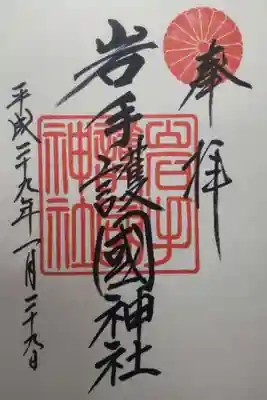 奉拝
岩手護國神社
岩手護國神社
平成二十九年一月二十九日